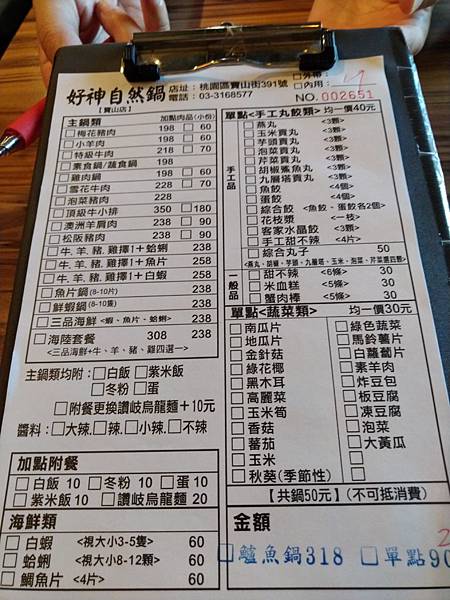 好神自然鍋
<寶山店>
店址：桃園區寶山街391號
電話：03-3168577
□外帶：
□內用：
NO. 002651
主鍋類 加點肉品(小份)
□梅花豬肉 198 □ 60
□小羊肉 198 □ 60
□特級牛肉 218 □ 70
□素食鍋/蔬食鍋 198
□雞肉鍋 198 □ 60
□雪花牛肉 228 □ 70
□泡菜豬肉 228
□頂級牛小排 350 □180
□澳洲羊肩肉 238 □ 90
□松阪豬肉 238 □ 90
□牛.羊.豬.雞擇1+蛤蜊 238
□牛.羊.豬.雞擇1+魚片 258
□牛.羊.豬.雞擇1+白蝦 258
□魚片鍋(8-10片) 238
□鮮蝦鍋(8-10隻) 238
□三品海鮮<蝦、魚片、蛤蜊> 238
□海陸套餐 308 238
<三品海鮮+牛、羊、豬、雞四選一>
主鍋類均附：□白飯 □紫米飯
□冬粉 □蛋
□附餐更換讚岐烏龍麵＋10元
醬料：□大辣.□辣.□小辣.□不辣
加點附餐
□白飯 10 □冬粉 10 □蛋 10
□紫米飯10 □讚岐烏龍麵 20
海鮮類
□白蝦 <視大小3-5隻> 60
□蛤蜊 <視大小8-12顆> 60
□鯛魚片 <4片> 60
單點<手工丸餃類> 均一價40元
手工品
□燕丸 <3顆>
□玉米貢丸 <3顆>
□芋頭貢丸 <3顆>
□泡菜貢丸 <3顆>
□芹菜貢丸 <3顆>
□胡椒鯊魚丸 <3顆>
□九層塔貢丸 <3顆>
□魚餃 <4個>
□蛋餃 <4個>
□綜合餃 <魚餃、蛋餃各2個>
□花枝漿 <一枝>
□客家水晶餃 <3顆>
□手工甜不辣 <4片>
□綜合丸子 50
<燕丸、胡椒、芋頭、九層塔、玉米、泡菜、芹菜選四顆>
一般品
□甜不辣 <6條> 30
□米血糕 <5條> 30
□蟹肉棒 <5條> 30
單點<蔬菜類> 均一價30元
□南瓜片 □綠色蔬菜
□地瓜片 □馬鈴薯片
□金針菇 □白蘿蔔片
□綠花椰 □素羊肉
□黑木耳 □炸豆包
□高麗菜 □板豆腐
□玉米筍 □凍豆腐
□香菇 □泡菜
□蕃茄 □大黃瓜
□玉米 □
□秋葵(季節性) □
【共鍋50元】(不可抵消費)
金額
□鱸魚鍋318 □單點90